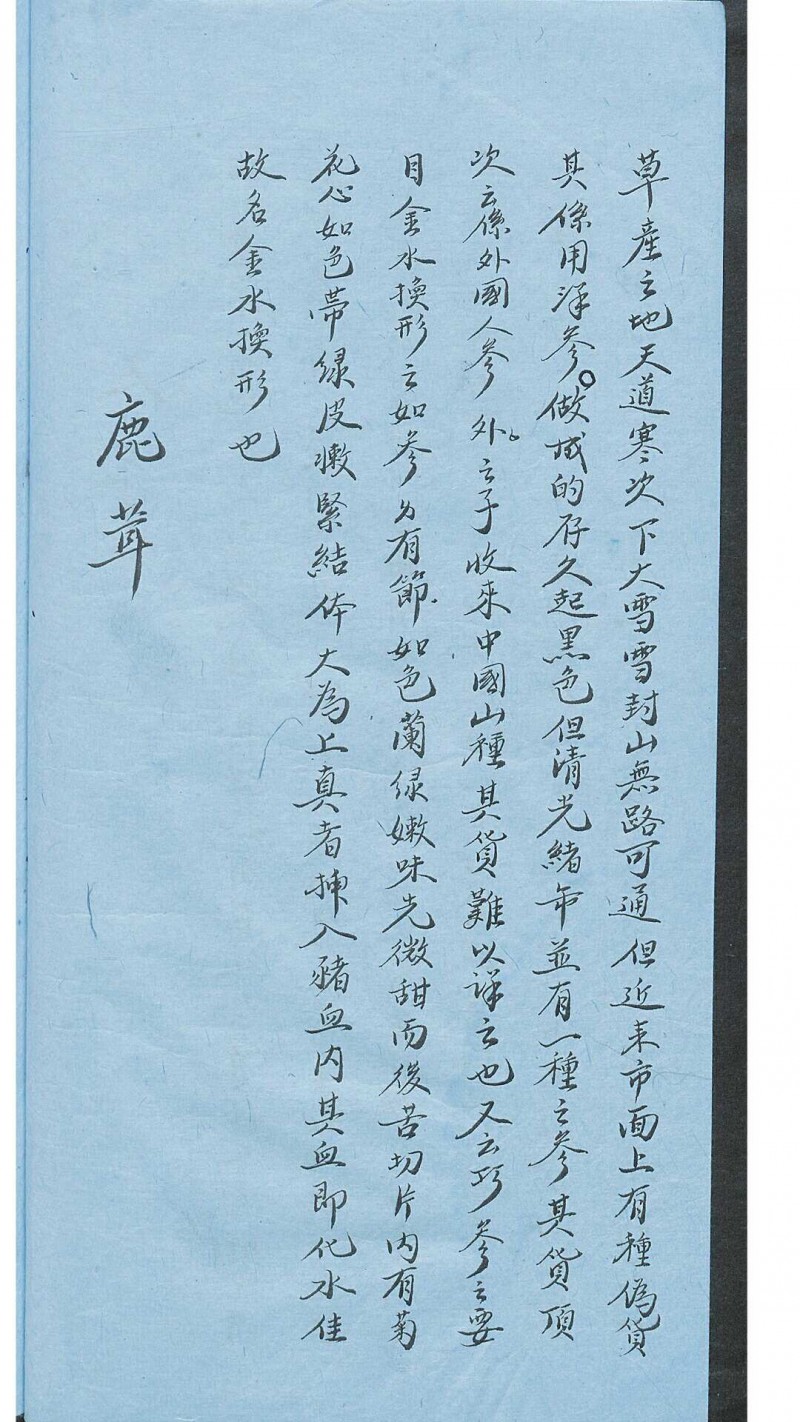 草產之地天道寒次下大雪雪封山無路可通但近来市面上有種偽貨
其係用洋參。做成的存久起黑色但清光緒年並有一種之參其貨頂
次云係外國人參外之子收來中國山種其貨難以詳云也又云巧參之要
目金水換形之如參分有節如色蘭绿嫩味先微甜而後苦切片内有菊
花心如色帶绿皮嫩緊結体大為上真者抻入豬血内其血即化水佳
故名金水換形也
鹿茸